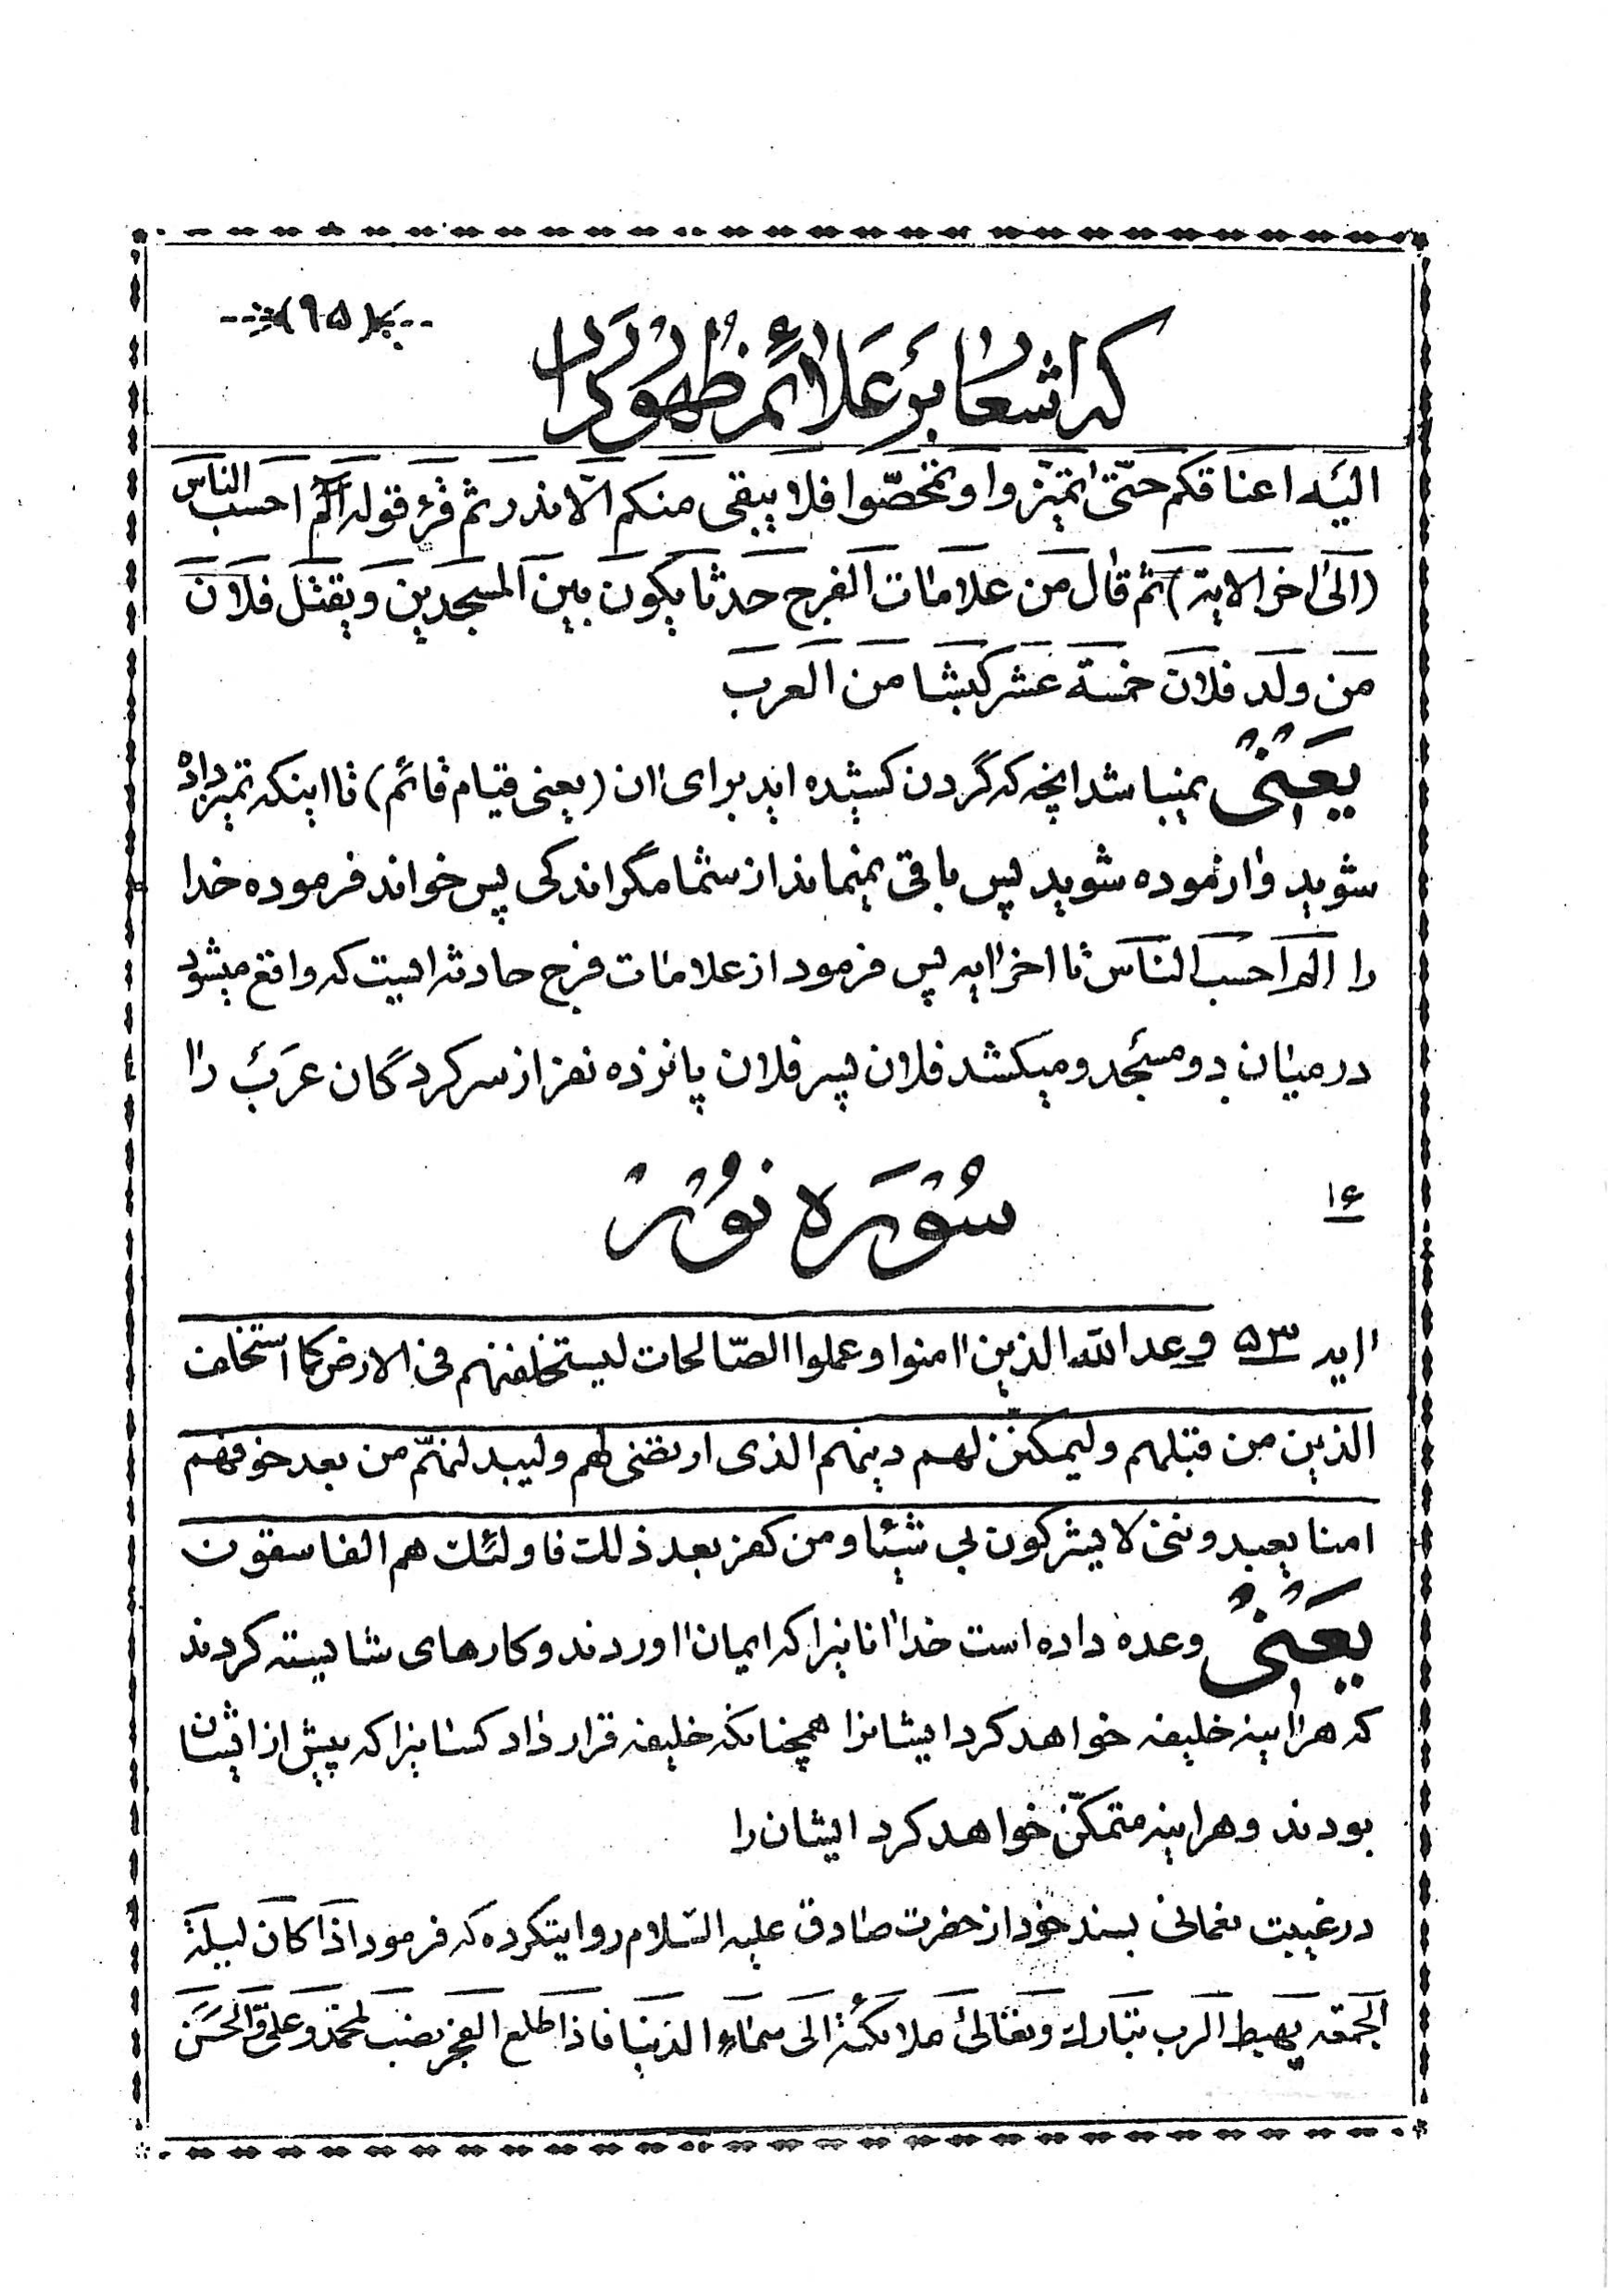 (۹۵)
که اشعار بر علائم ظهور دارد
الیه اعناقکم حتّی تمیّزوا و تمحّصوا فلا یبقی منکم الّا نذر ثم قرء قوله الم احسب الناس
(الی اخر الایة) ثم قال من علامات الفرج حدثا یکون بین المسجدین و یقتل فلان
من ولد فلان خمسة عشر کبشا من العرب
یعنی نمیباشد انچه که گردن کشیده اید برای ان (یعنی قیام قائم) تا اینکه تمیز داده
شوید و ازموده شوید پس باقی نمیماند از شما مگر اندکی پس خواند فرموده خدا
را الم احسب الناس تا اخر ایه پس فرمود از علامات فرج حادثه ایست که واقع میشود
در میان دو مسجد و میکشد فلان پسر فلان پانزده نفر از سرکردگان عرب را
۱۶
سوره نور
ایه ۵۳ وعد الله الذین امنوا و عملوا الصّالحات لیستخلفنهم فی الارض کما استخلف
الذین من قبلهم و لیمکننّ لهم دینهم الذی ارتضی لهم و لیبدلنهّم من بعد خوفهم
امنا یعبدوننی لا یشرکون بی شیئا و من کفر بعد ذلک فاولئک هم الفاسقون
یعنی وعده داده است خدا انانیرا که ایمان اوردند و کارهای شایسته کردند
که هراینه خلیفه خواهد کرد ایشانرا همچنانکه خلیفه قرار داد کسانیرا که پیش از ایشان
بودند و هراینه متمکّن خواهد کرد ایشان را
در غیبت نعمانی بسند خود از حضرت صادق علیه السّلام روایتکرده که فرمود اذا کان لیلة
الجمعه یهبط الرب تبارک و تعالی ملائکته الی سماء الدنیا فاذا طلع الفجر نصب لمحمّد و علیّ و الحسن